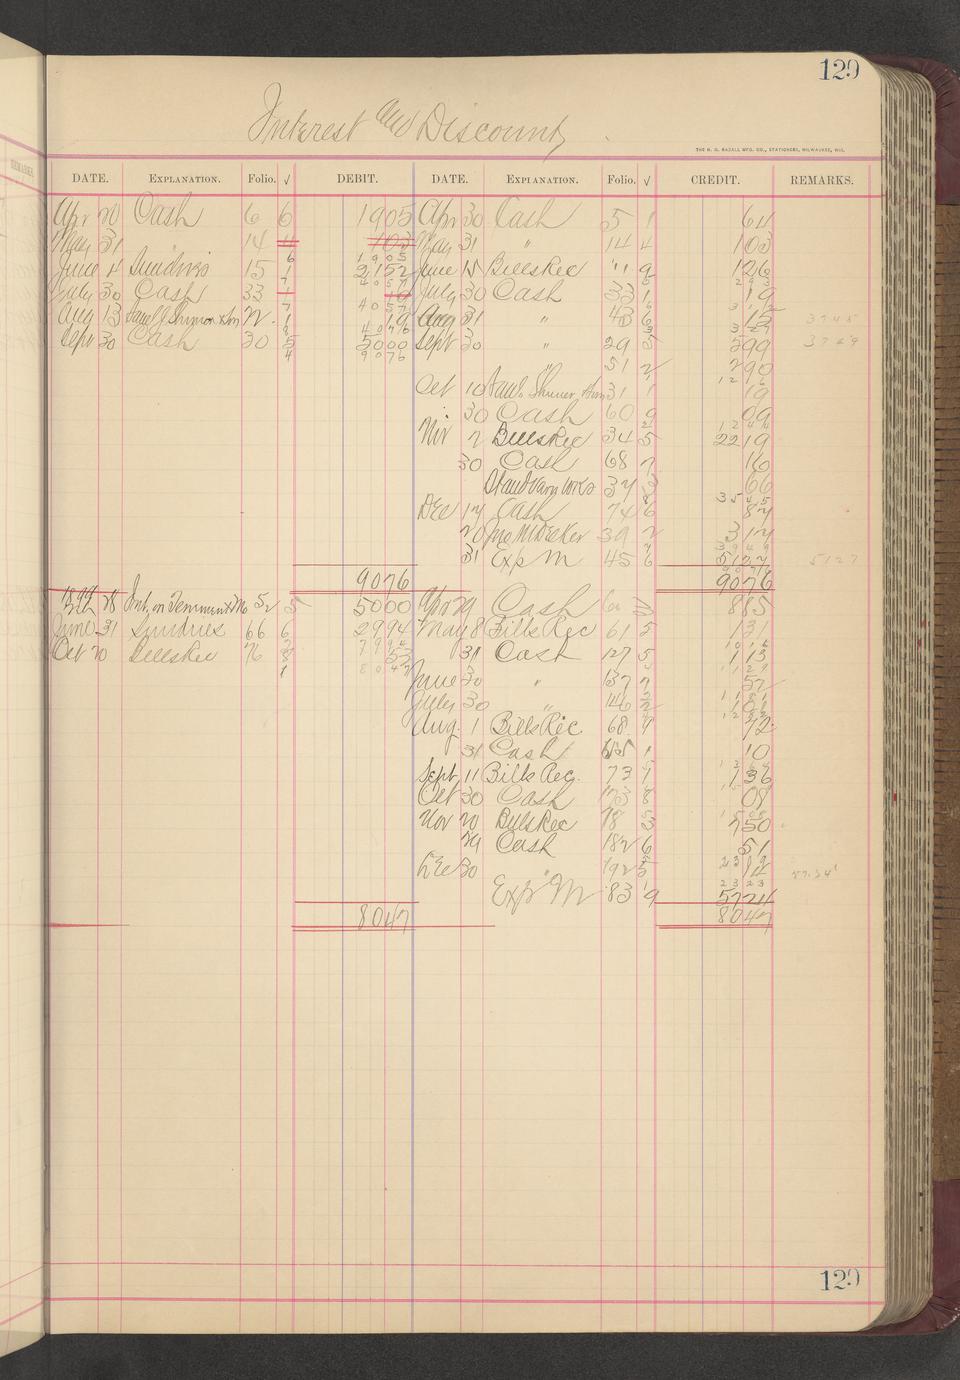 129
Interest and Discount
THE H. G. RAZALL MFG. CO., STATIONERS, MILWAUKEE, WIS.
DATE. EXPLANATION. Folio. √ DEBIT. DATE. EXPLANATION. Folio. √ CREDIT. REMARKS.
Apr 20 Cash 6 6 1905 Apr 30 Cash 5 1 64
May 31 14 4 103 May 31 " 14 4 103
June 4 Sundries 15 1 2152 June 15 Bills Rec "11 9 126
July 30 Cash 33 1 19 July 30 Cash 33 1 19
Aug 13 1 19 Aug 31 " 43 6 15 3745
Sept 30 Cash 30 5 5000 Sept 30 " 29 5 299 3769
9076 51 2 290
Oct 10 31 1 19
30 Cash 60 9 09
Nov 2 Bills Rec 34 5 2219
30 Cash 68 7 16
37 3 66
Dec 17 Cash 74 6 87
20 Jno M Decker 39 2 314
31 Exp M 45 6 5127 5127
9076 9076
28 52 5 5000 Apr 29 Cash 885
June 31 Sundries 66 6 2994 May 8 Bills Rec 61 5 131
Oct 20 Bills Rec 76 8 53 31 Cash 127 5 113
8047 June 30 " 137 7 57
July 30 " 146 2
Aug. 1 Bills Rec. 68 9 72
31 Cash 1 10
Sept 11 Bills Rec. 73 1 36
Oct 30 Cash 173 8 08
Nov 20 Bills Rec 78 3 750
29 Cash 182 6 51
Dec 30 " 192 5 14 5724
Exp M 83 9 5724
8047 8047
129